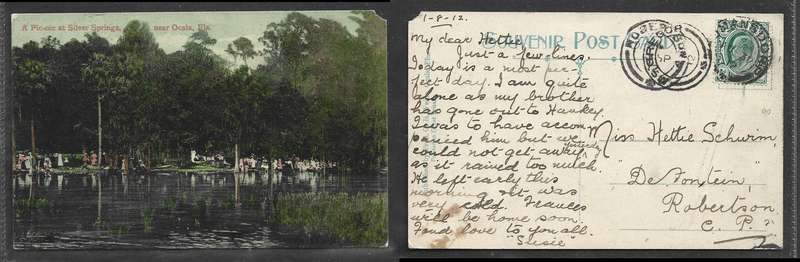 A Pic-nic at Silver Springs, near Ocala, Fla.
1-8-12.
SOUVENIR POST CARD
My dear Hettie
Just a few lines.
Today is a most per-
fect day. I am quite
alone as my brother
has gone out to
I was to have accom
panied him but we
could not get away yesterday
as it rained too much.
He left early this
morning it was
very cold. Frances
will be home soon.
Fond love to you all.
"Susie"
Miss Hettie Schwim,
"De Fontein,
Robertson
C. P.